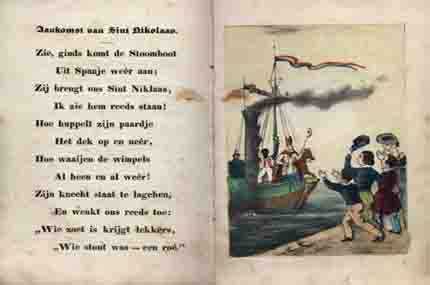 Aankomst van Sint Nikolaas.
Zie, ginds komt de Stoomboot
Uit Spanje weêr aan;
Zij brengt ons Sint Niklaas,
Ik zie hem reeds staan!
Hoe huppelt zijn paardje
Het dek op en neêr,
Hoe waaijen de wimpels
Al heen en al weêr!
Zijn knecht staat te lagchen,
En wenkt ons reeds toe:
„Wie zoet is krijgt lekkers,
„Wie stout was — een roê."